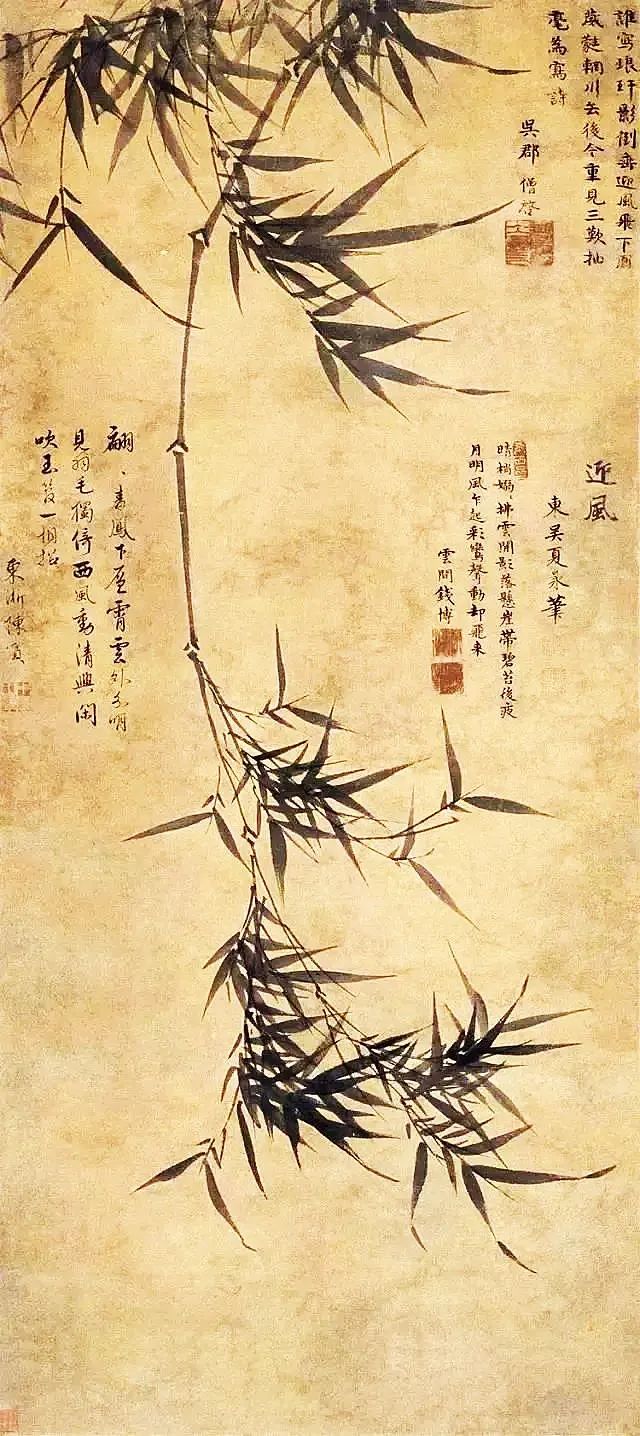 誰寫琅玕影倒垂迎風飛下
葳蕤輞川去後今重見三歎抽
毫為寫詩
吳郡 僧啓
迎風
東吳夏昶筆
晴梢嫋嫋拂雲開影落懸崖帶碧苔後夜
月明風乍起彩鸞聲動却飛來
雲間錢博
翩翩青鳳下層霄雲外分明
見羽毛獨倚西風動清興閑
吹玉一相招
東浙陳